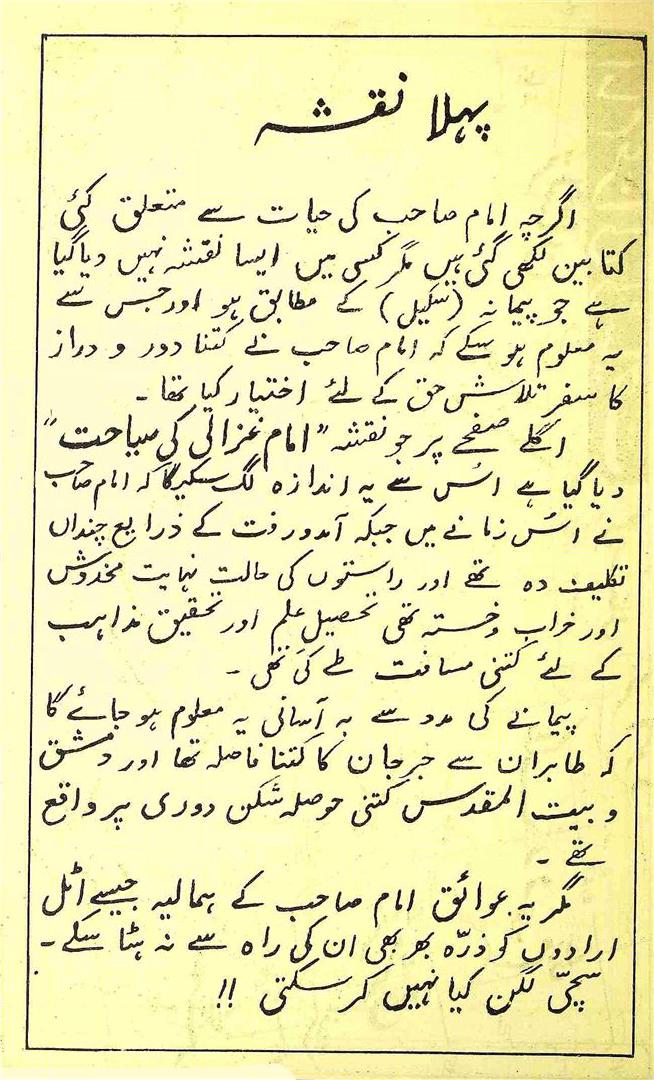 پہلا نقشہ
اگرچہ امام صاحب کی حیات سے متعلق کئی
کتابین لکھی گئی ہیں مگر کسی میں ایسا نقشہ نہیں دیا گیا
ہے جو پیمانہ (سکیل) کے مطابق ہو اور جس سے
یہ معلوم ہو سکے کہ امام صاحب نے کتنا دور و دراز
کا سفر تلاش حق کے لئے اختیار کیا تھا۔
اگلے صفحے پر جو نقشہ "امام غزالی کی سیاحت"
دیا گیا ہے اسُ سے یہ اندازہ لگ سکیگا کہ امام صاحب
نے اسُ زمانے میں جبکہ آمدورفت کے ذرایع چنداں
تکلیف دہ تھے اور راستوں کی حالت نہایت مخدوش
اور خراب و خستہ تھی تحصیل علم اور تحقیق مذاہب
کے لئے کتنی مسافت طے کی تھی۔
پیمانے کی مدد سے بہ آسانی یہ معلوم ہو جائے گا
کہ طابران سے جرجان کا کتنا فاصلہ تھا اور دمشق
و بیت المقدس کتنی حوصلہ شکن دوری پر واقع
تھے۔
مگر یہ عوائق امام صاحب کے ہمالیہ جیسے اٹل
ارادوں کو ذرّہ بھر بھی ان کی راہ سے نہ ہٹا سکے۔
سچّی لگن کیا نہیں کر سکتی !!